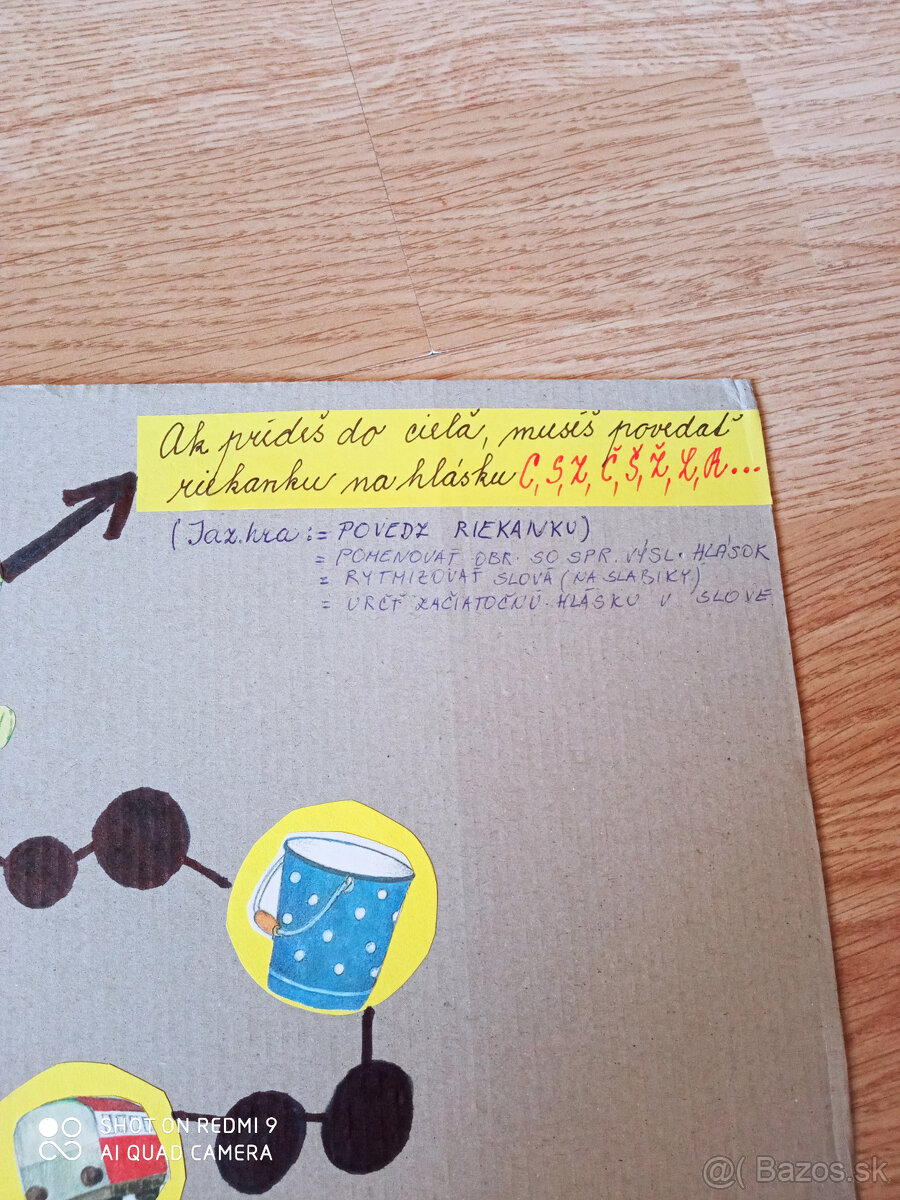 Ak prídeš do cieľa, musíš povedať
riekanku na hlásku C, S, Z, Č, Š, Ž, L, R...
(Jaz.hra := POVEDZ RIEKANKU)
= POMENOVAŤ OBR. SO SPR. VÝSL. HLÁSOK
= RYTMIZOVAŤ SLOVÁ (NA SLABIKY)
= URČŤ ZAČIATOČNÚ HLÁSKU V SLOVE
SHOT ON REDMI 9
AI QUAD CAMERA
@( Bazos.sk